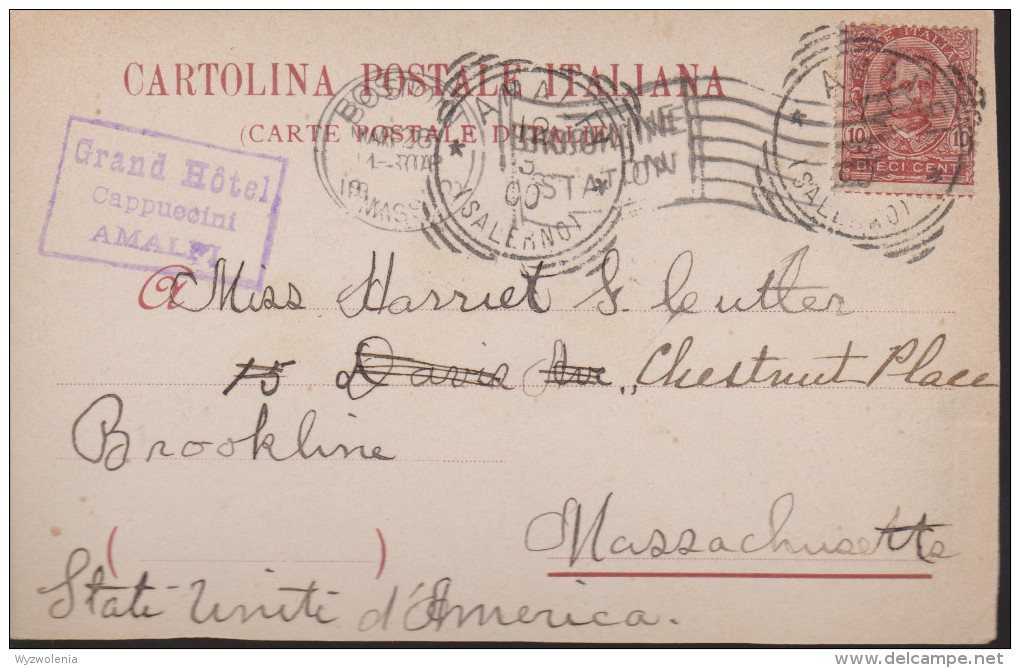 CARTOLINA POSTALE ITALIANA
(CARTE POSTALE D'ITALIE)
Grand Hôtel
Cappuccini
AMALFI
BOSTON
MAR 26
MASS.
AMALFI
13
3
00
(SALERNO)
BROOKLINE
STATION
POSTE ITALIANE
10 10
DIECI CENT
AMALFI
(SALERNO)
A Miss Harriet S. Cutter
15 Davis Av., Chestnut Place
Brookline
Massachusetts
( )
State Uniti d'America.
Wyzwolenia
delcampe.net